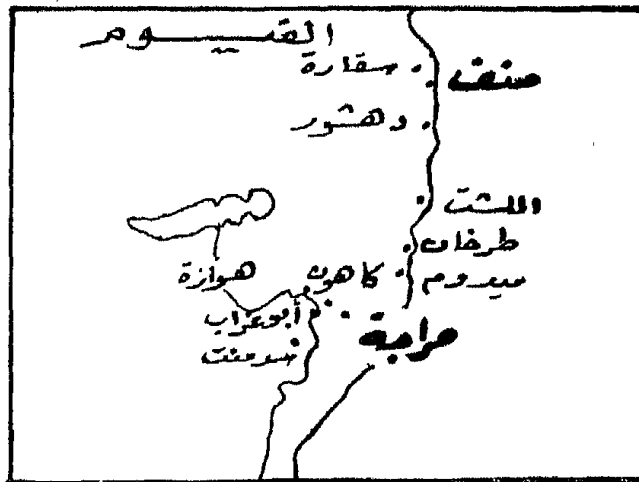 الفيوم
سقارة
منف
دهشور
اللشت
طرخان
ميدوم
كاهون
هوارة
أبو غراب
حراجة